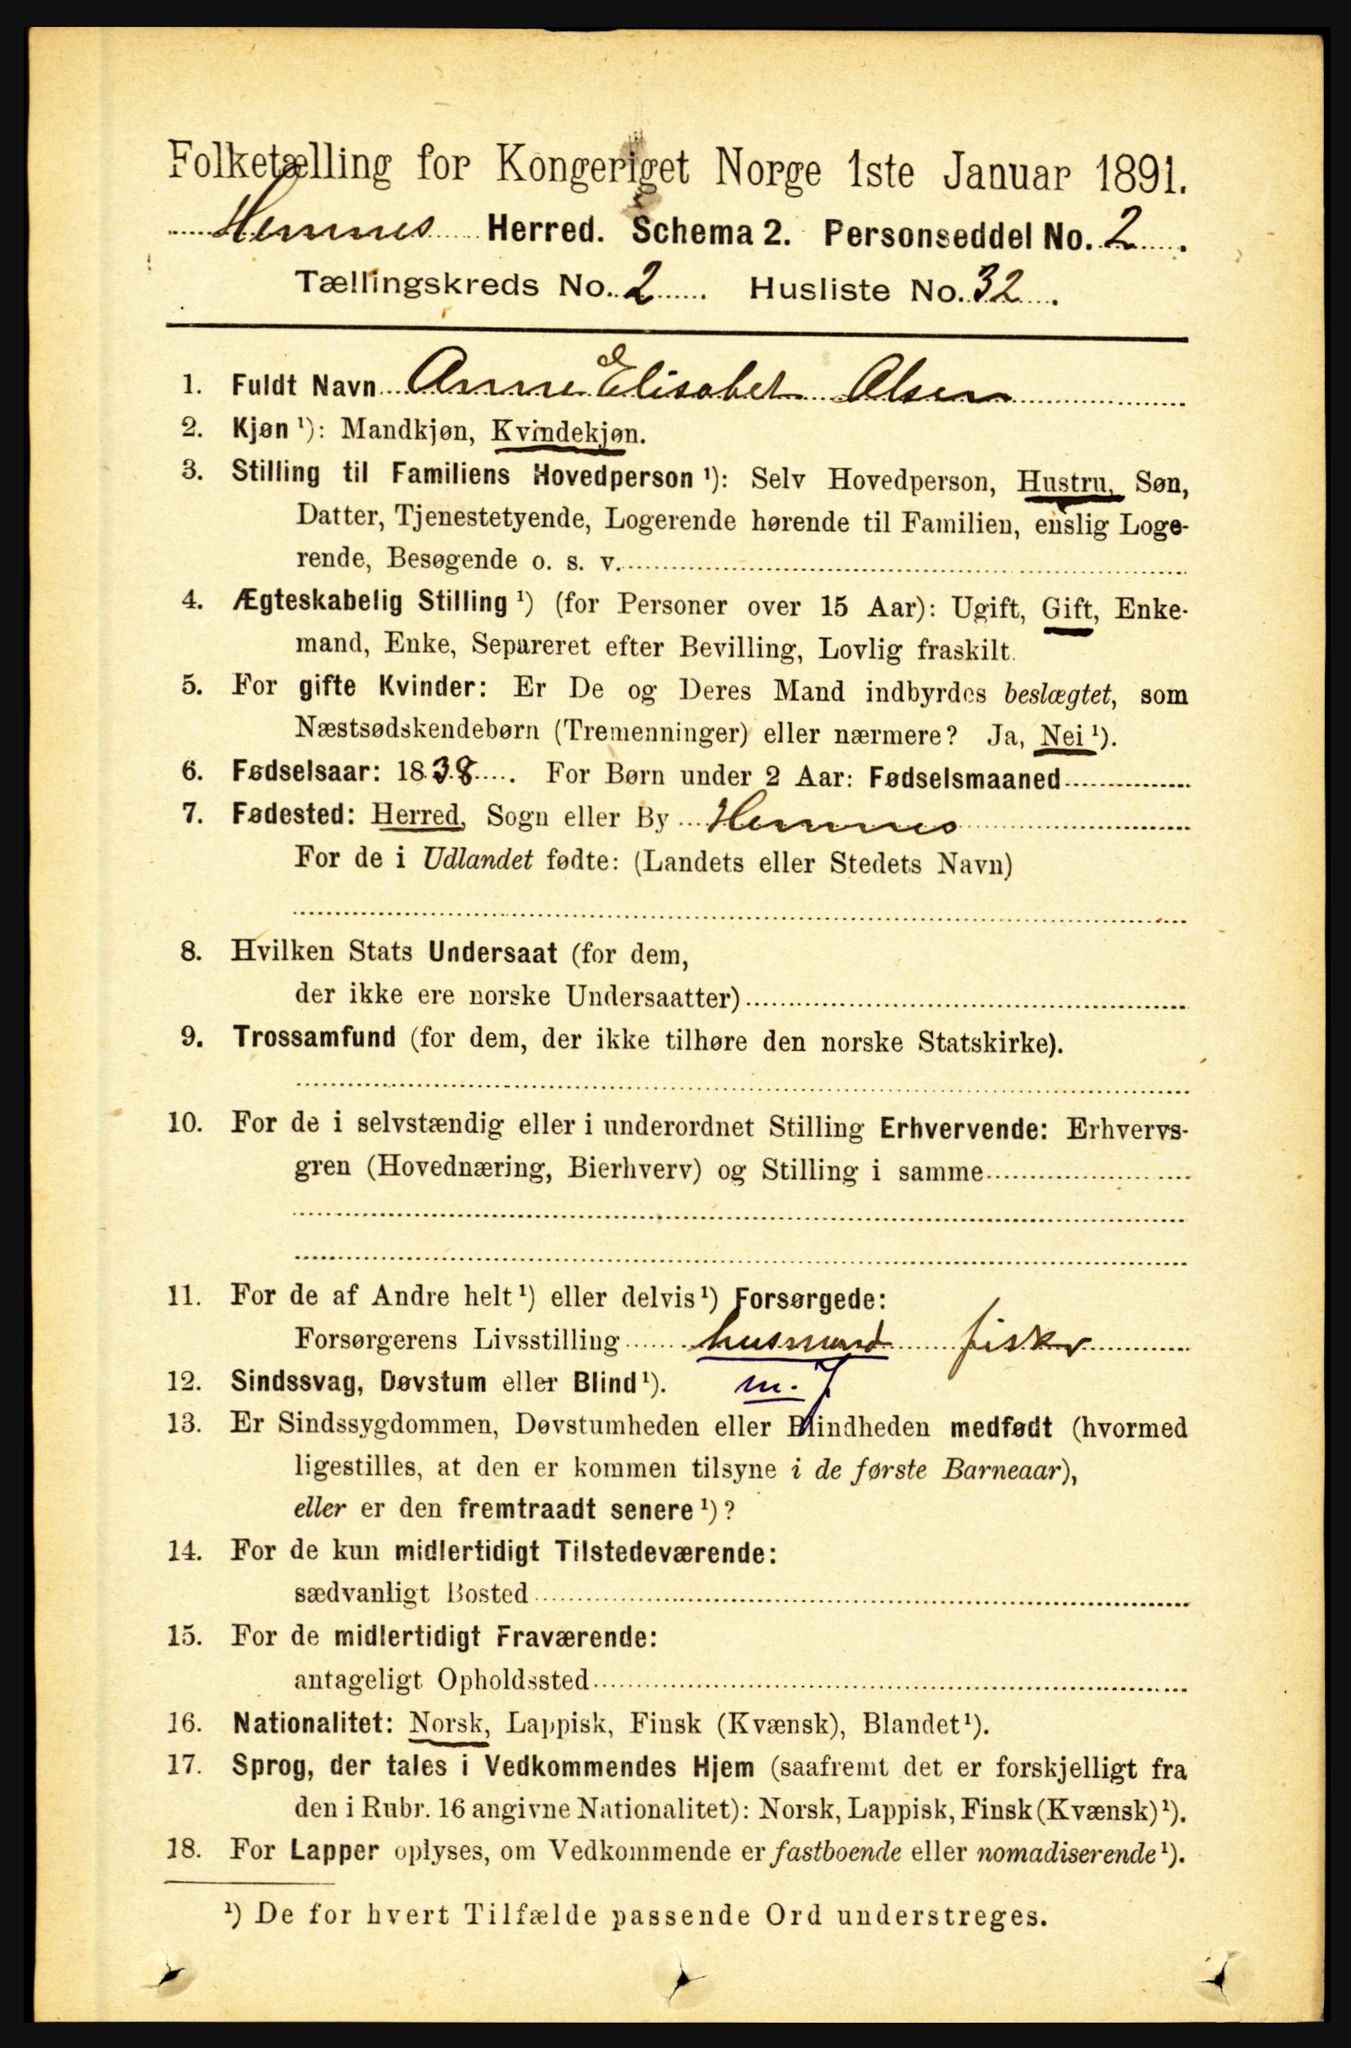 Folketælling for Kongeriget Norge 1ste Januar 1891.
Hemnes Herred. Schema 2. Personseddel No. 2
Tællingskreds No. 2 Husliste No. 32
1. Fuldt Navn Anne Elisabet Olsen
2. Kjøn ¹): Mandkjøn, Kvindekjøn.
3. Stilling til Familiens Hovedperson ¹): Selv Hovedperson, Hustru, Søn,
Datter, Tjenestetyende, Logerende hørende til Familien, enslig Loge-
rende, Besøgende o. s. v.
4. Ægteskabelig Stilling ¹) (for Personer over 15 Aar): Ugift, Gift, Enke-
mand, Enke, Separeret efter Bevilling, Lovlig fraskilt.
5. For gifte Kvinder: Er De og Deres Mand indbyrdes beslægtet, som
Næstsødskendebørn (Tremenninger) eller nærmere? Ja, Nei ¹).
6. Fødselsaar: 1838. For Børn under 2 Aar: Fødselsmaaned
7. Fødested: Herred, Sogn eller By Hemnes
For de i Udlandet fødte: (Landets eller Stedets Navn)
8. Hvilken Stats Undersaat (for dem,
der ikke ere norske Undersaatter)
9. Trossamfund (for dem, der ikke tilhøre den norske Statskirke).
10. For de i selvstændig eller i underordnet Stilling Erhvervende: Erhvervs-
gren (Hovednæring, Bierhverv) og Stilling i samme
11. For de af Andre helt ¹) eller delvis ¹) Forsørgede:
Forsørgerens Livsstilling husmand fisker
12. Sindssvag, Døvstum eller Blind ¹). m. J
13. Er Sindssygdommen, Døvstumheden eller Blindheden medfødt (hvormed
ligestilles, at den er kommen tilsyne i de første Barneaar),
eller er den fremtraadt senere ¹)?
14. For de kun midlertidigt Tilstedeværende:
sædvanligt Bosted
15. For de midlertidigt Fraværende:
antageligt Opholdssted
16. Nationalitet: Norsk, Lappisk, Finsk (Kvænsk), Blandet ¹).
17. Sprog, der tales i Vedkommendes Hjem (saafremt det er forskjelligt fra
den i Rubr. 16 angivne Nationalitet): Norsk, Lappisk, Finsk (Kvænsk) ¹).
18. For Lapper oplyses, om Vedkommende er fastboende eller nomadiserende ¹).
¹) De for hvert Tilfælde passende Ord understreges.